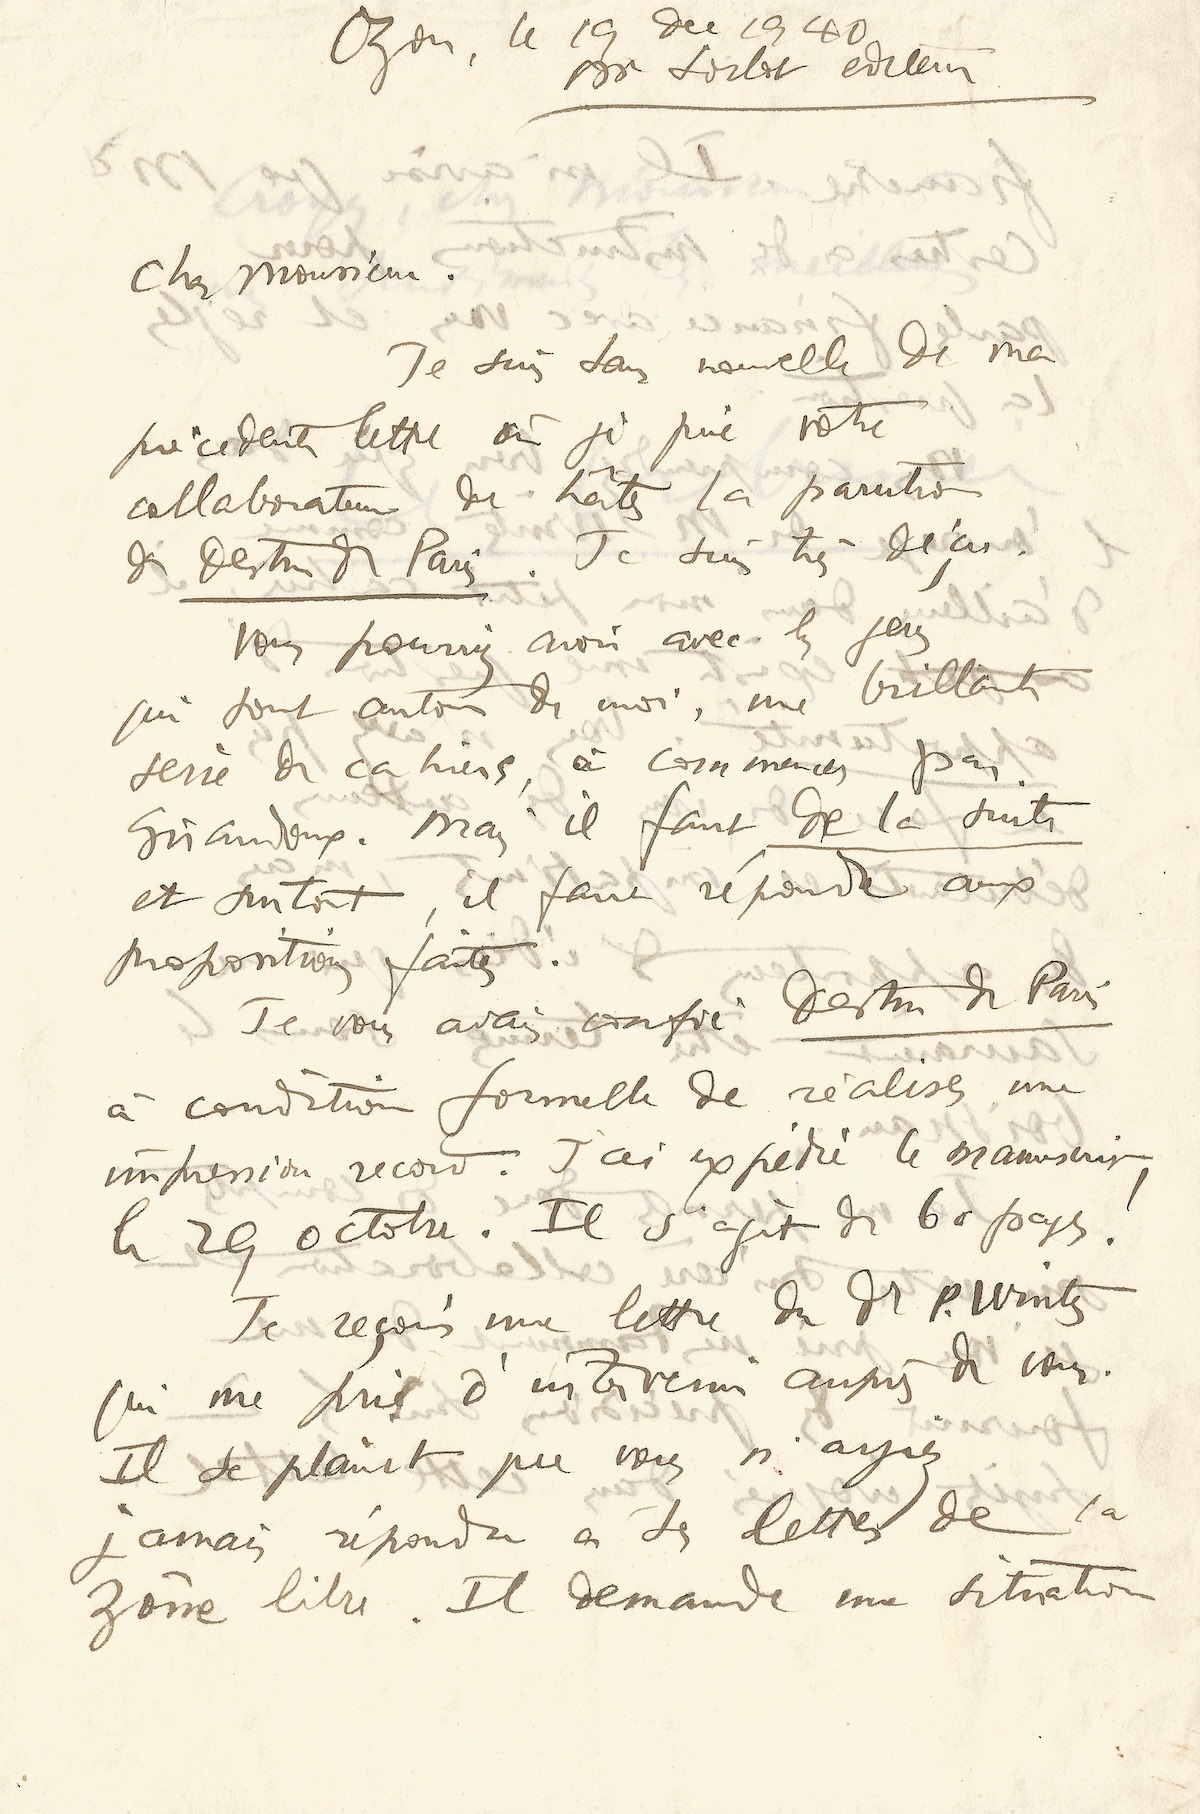 Ozon, le 19 dec 1940
Mr Sorlot editeur
Cher Monsieur.
Je suis sans nouvelle de ma
précédente lettre où je prie votre
collaborateur de hâter la parution
de Destin de Paris. Je suis très déçu.
Vous pourriez avoir avec les gens
qui sont autour de moi, une brillante
serie de cahiers, à commencer par
Giraudoux. Mais il faut de la suite
et surtout, il faut répondre aux
propositions faites.
Je vous avais confié Destin de Paris
à condition formelle de réaliser une
impression record. J'ai expédié le manuscrit
le 29 octobre. Il s'agit de 60 pages!
Je reçois une lettre du Dr P. Winter
qui me prie d'intervenir auprès de vous.
Il se plaint que vous n'ayiez
jamais répondu à ses lettres de la
zône libre. Il demande une situation